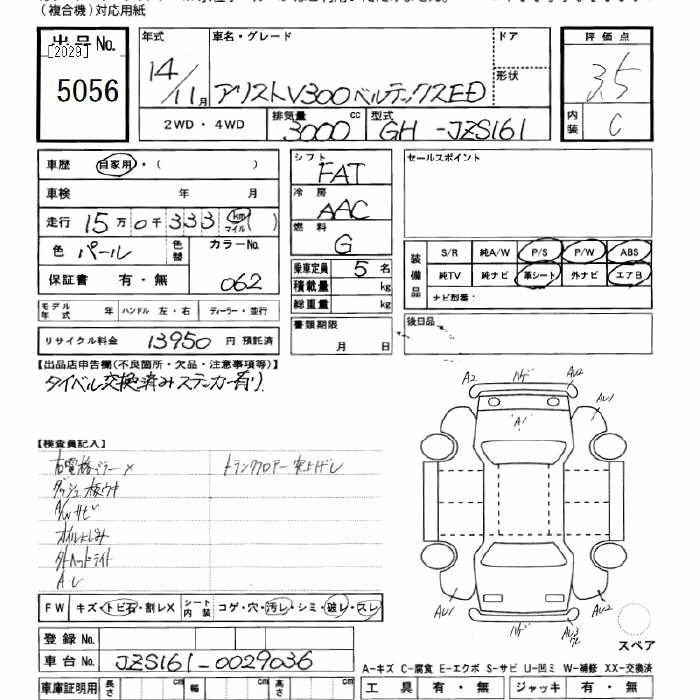 (複合機)対応用紙
出品No. [2029]
5056
年式 14/11月
車名・グレード アリストV300ベルテックスED
ドア
形状
2WD・4WD
排気量 3000 cc
型式 GH-JZS161
評価点 3.5
内装 C
車歴 自家用・( )
車検 年 月
走行 15万0千333 km マイル
色 パール
色替
カラーNo. 062
保証書 有・無
モデル年式 年 ハンドル 左・右 ディーラー・並行
リサイクル料金 13950 円 預託済
シフト FAT
冷房 AAC
燃料 G
乗車定員 5名
積載量 kg
総重量 kg
書類期限 月 日
セールスポイント
装備品 S/R 純A/W P/S P/W ABS
純TV 純ナビ 革シート 外ナビ エアB
ナビ型番:
後日品
【出品店申告欄(不良箇所・欠品・注意事項等)】
タイベル交換済みステッカー有り
【検査員記入】
右電格ミラー×
トランクフロアー突上げ
A/Wサビ
FW キズ・トビ石・割レX シート内装 コゲ・穴・汚レ・シミ・破レ・スレ
登録No.
車台No. JZS161-0029036
車庫証明用 長さ cm 幅 cm 高さ cm
A2 ハゲ AU2
AU1
A1
AU1 ハゲ AU3 AU2
スペア
A-キズ C-腐食 E-エクボ S-サビ U-凹ミ W-補修 XX-交換済
工具 有・無 ジャッキ 有・無